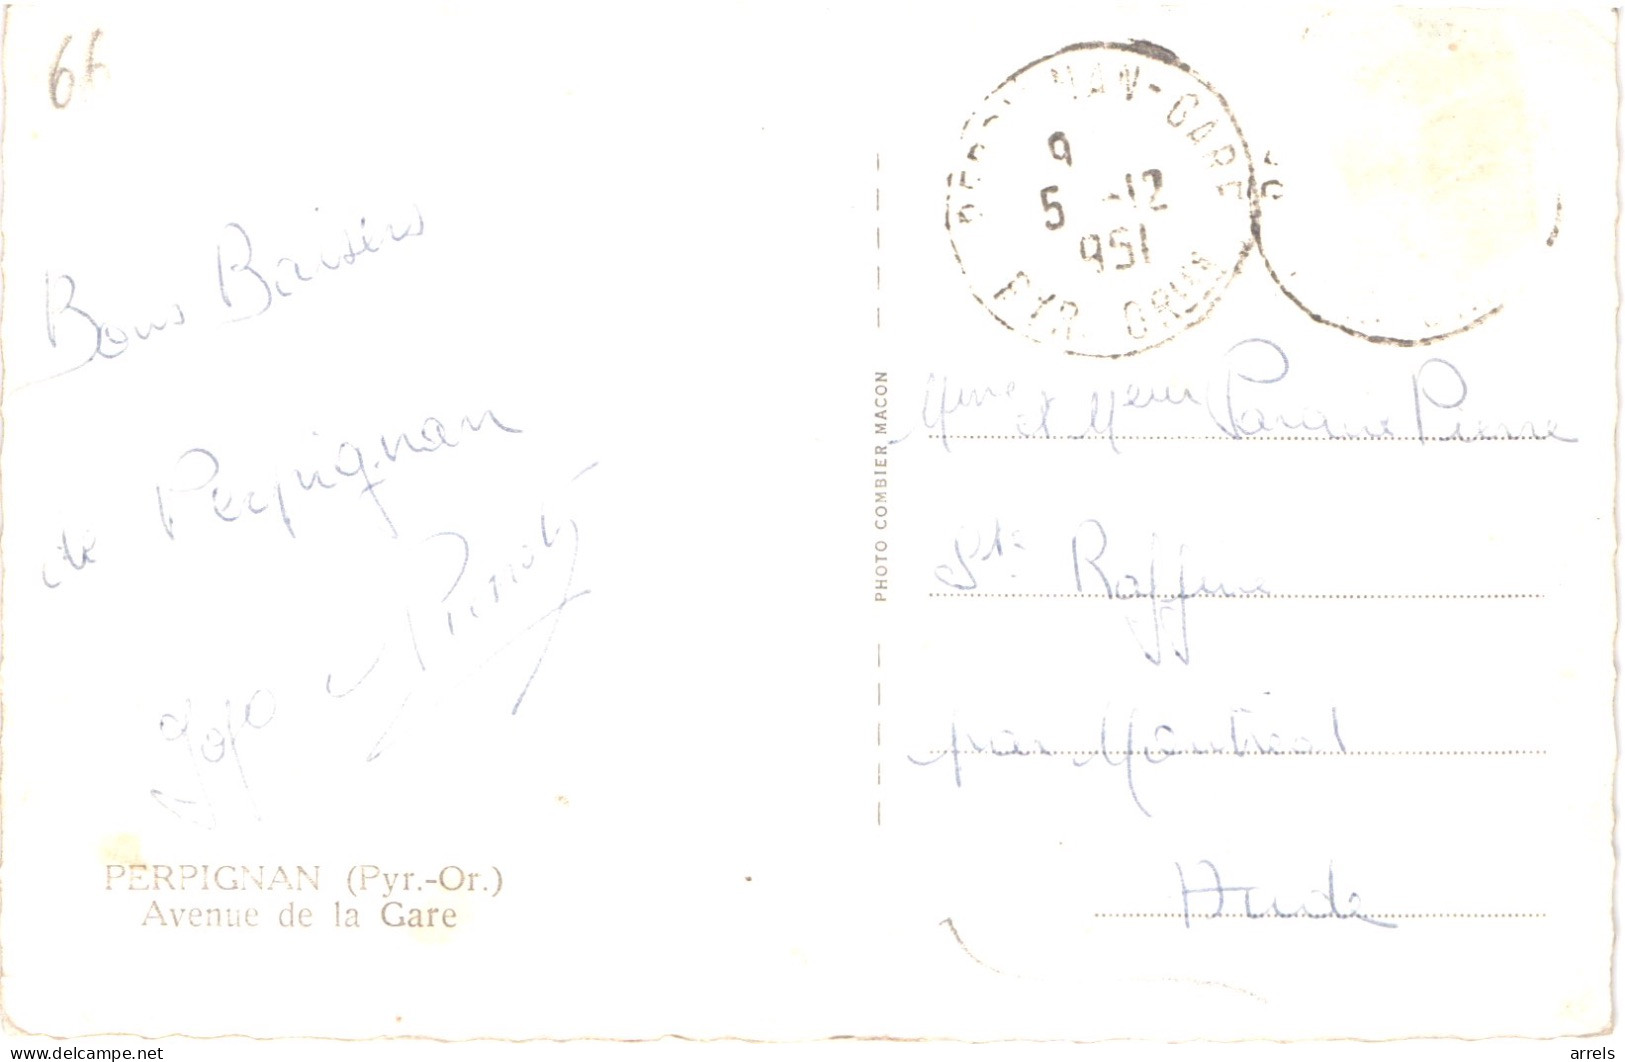 66
Bons Baisers
de Perpignan
Jojo
PERPIGNAN (Pyr.-Or.)
Avenue de la Gare
PHOTO COMBIER MACON
PERPIGNAN-GARE
9
5 -12
951
PYR. ORIES
Mme et Meur Pierre
Ste Raffine
par Montréal
Aude
www.delcampe.net
arrels